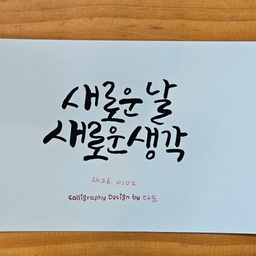 새로운 날
새로운 생각
2026.0101
Calligraphy Design by 다온